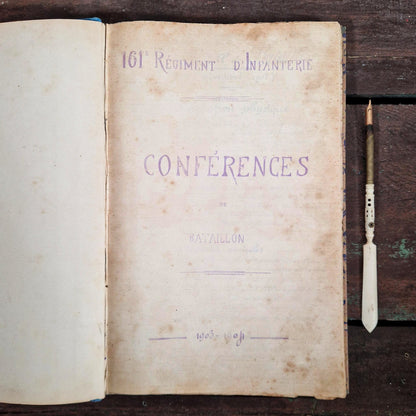 161e RÉGIMENT D'INFANTERIE
CONFÉRENCES
DE
BATAILLON
1903-1904